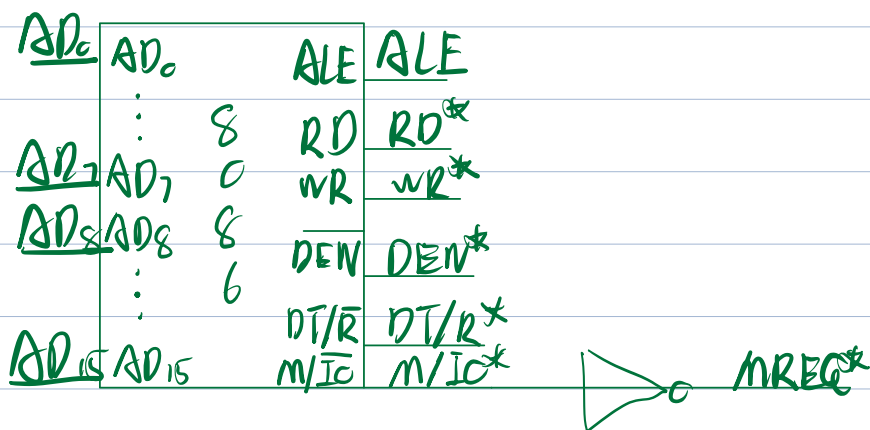 AD₀ AD₀ ALE ALE
⋮ 8 RD RD*
AD₇ AD₇ 0 WR WR*
AD₈ AD₈ 8
⋮ 6 D̅E̅N̅ DEN*
DT/R̅ DT/R*
AD₁₅ AD₁₅ M/I̅O̅ M/IO* MREQ*